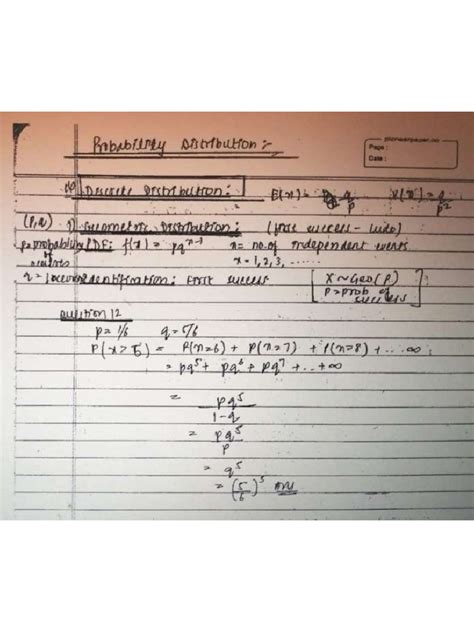 Probability Distribution :-
Page :
Date :
Discrete Distribution : E(x) = q/p V(x) = q/p²
(p, q) Geometric Distribution (first success - land)
p = probability of success PDF: f(x) = pq^x-1 x = no. of independent events
x = 1, 2, 3, ......
q = Identification : First success [ X ~ Geo(p)
p = prob of success ]
Question 12
p = 1/6 q = 5/6
P(x > 5) = P(x=6) + P(x=7) + P(x=8) + ... ∞
= pq⁵ + pq⁶ + pq⁷ + ... + ∞
= pq⁵ / 1-q
= pq⁵ / p
= q⁵
= (5/6)⁵ Ans